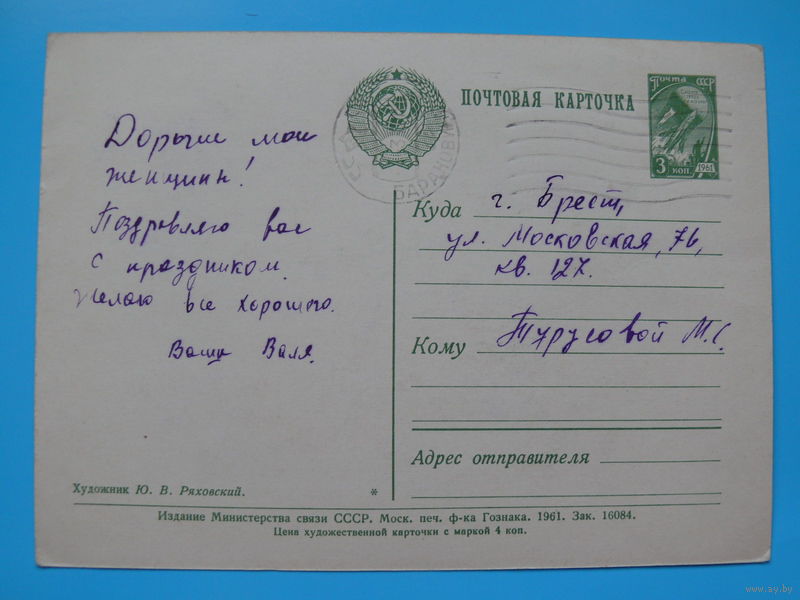 Почта СССР
3 коп.
1961
ПОЧТОВАЯ КАРТОЧКА
ССР
БАРАНОВИ
Дорогие мои
женщины!
Поздравляю вас
с праздником.
Желаю все хорошего.
Ваша Валя.
Куда
г. Брест,
ул. Московская, 76,
кв. 127.
Кому
Турусовой М.С.
Адрес отправителя
Художник Ю. В. Ряховский.
*
Издание Министерства связи СССР. Моск. печ. ф-ка Гознака. 1961. Зак. 16084.
Цена художественной карточки с маркой 4 коп.
www.ay.by